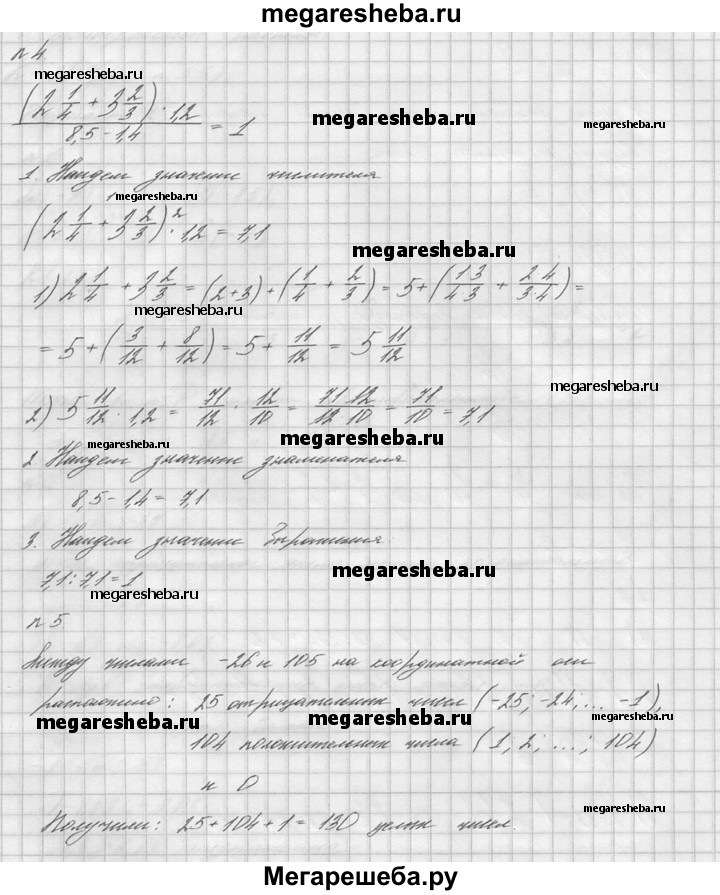 megaresheba.ru
n 4.
megaresheba.ru
(2 1/4 + 3 2/3) · 1,2 / 8,5 - 1,4 = 1
megaresheba.ru
1. Найдем значение числителя
megaresheba.ru
(2 1/4 + 3 2/3)² · 1,2 = 7,1
megaresheba.ru
1) 2 1/4 + 3 2/3 = (2+3) + (1/4 + 2/3) = 5 + (1·3/4·3 + 2·4/3·4) =
megaresheba.ru
= 5 + (3/12 + 8/12) = 5 + 11/12 = 5 11/12
megaresheba.ru
2) 5 11/12 · 1,2 = 71/12 · 12/10 = 71 12/12 10 = 71/10 = 7,1
megaresheba.ru
megaresheba.ru
2. Найдем значение знаменателя
8,5 - 1,4 = 7,1
megaresheba.ru
3. Найдем значение выражения:
megaresheba.ru
7,1 : 7,1 = 1
megaresheba.ru
n 5
Между числами -26 и 105 на координатной оси
расположено: 25 отрицательных чисел (-25; -24; ... -1),
megaresheba.ru
megaresheba.ru
megaresheba.ru
104 положительных числа (1, 2; ...; 104)
и 0
megaresheba.ru
Получили: 25 + 104 + 1 = 130 целых чисел.
Мегарешеба.ру